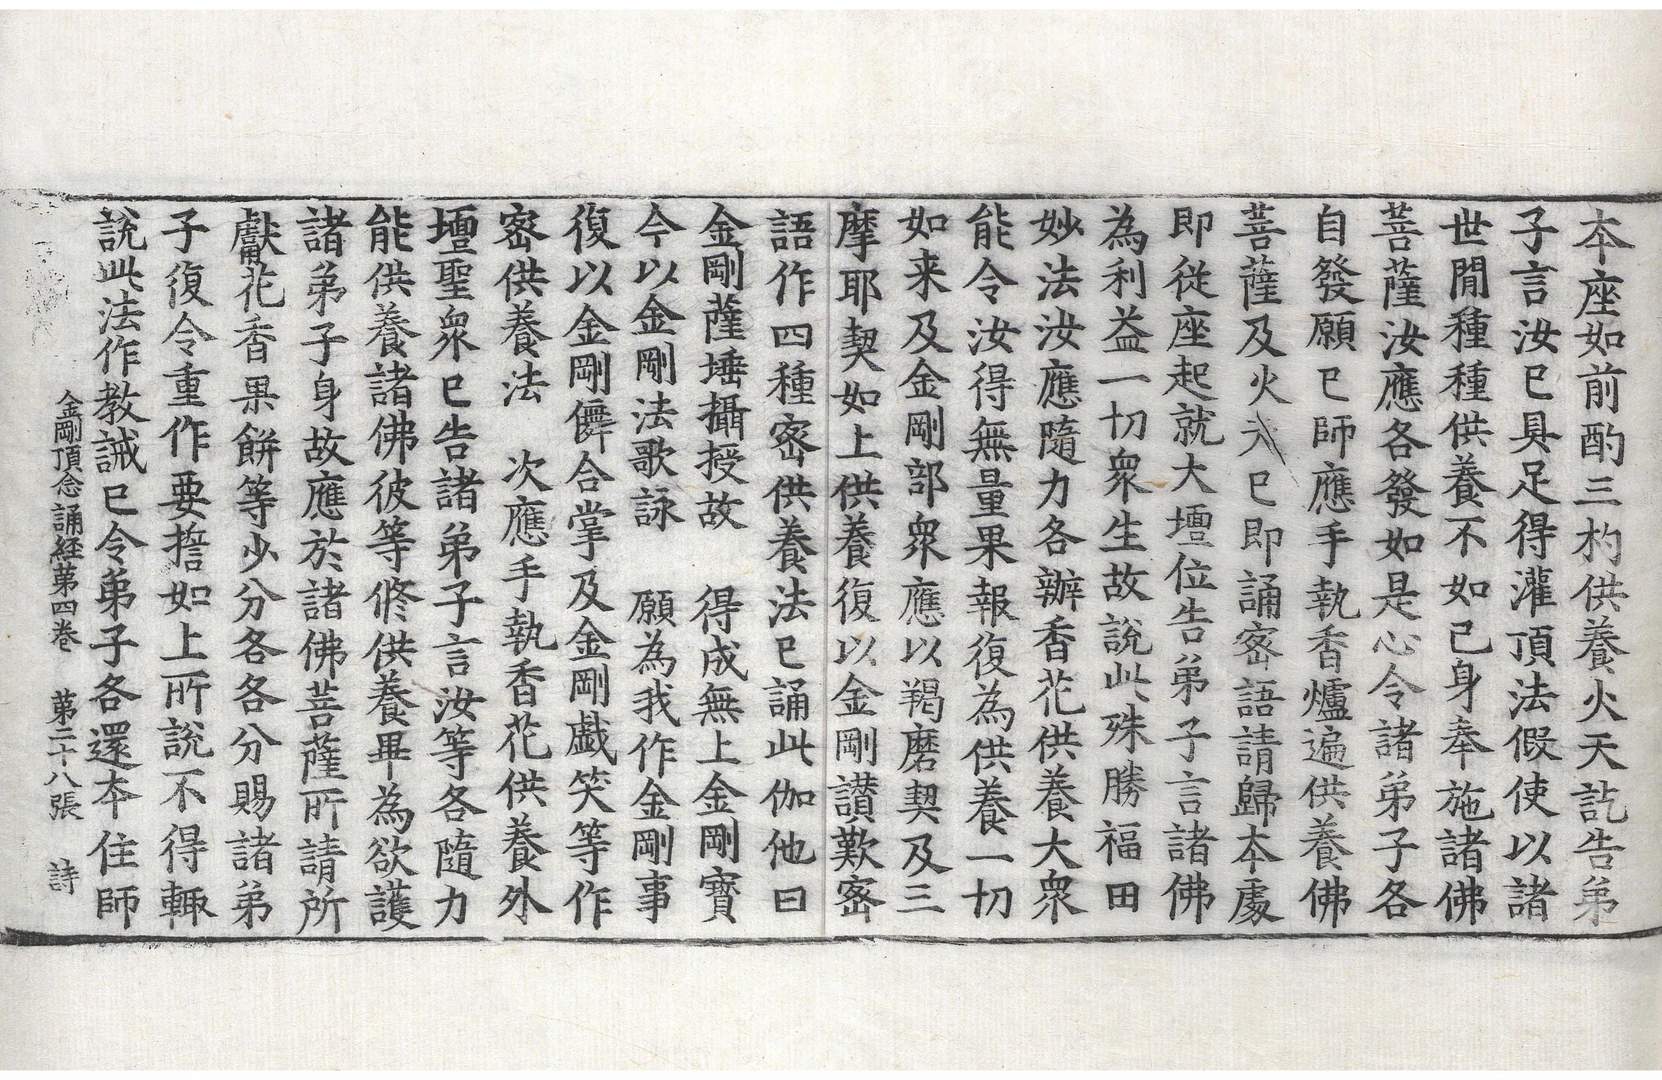 本座如前酌三杓供養火天訖告弟
子言汝已具足得灌頂法假使以諸
世間種種供養不如己身奉施諸佛
菩薩汝應各發如是心令諸弟子各
自發願已師應手執香爐遍供養佛
菩薩及火天已即誦密語請歸本處
即從座起就大壇位告弟子言諸佛
為利益一切眾生故說此殊勝福田
妙法汝應隨力各辦香花供養大眾
能令汝得無量果報復為供養一切
如来及金剛部眾應以羯磨契及三
摩耶契如上供養復以金剛讃歎密
語作四種密供養法已誦此伽他曰
金剛薩埵攝授故　得成無上金剛寶
今以金剛法歌詠　願為我作金剛事
復以金剛儛合掌及金剛戯笑等作
密供養法　次應手執香花供養外
壇聖眾已告諸弟子言汝等各隨力
能供養諸佛彼等修供養畢為欲護
諸弟子身故應於諸佛菩薩所請所
獻花香果餅等少分各各分賜諸弟
子復令重作要誓如上所說不得輙
說此法作教誡已令弟子各還本住師
金剛頂念誦経第四巻　第二十八張　詩